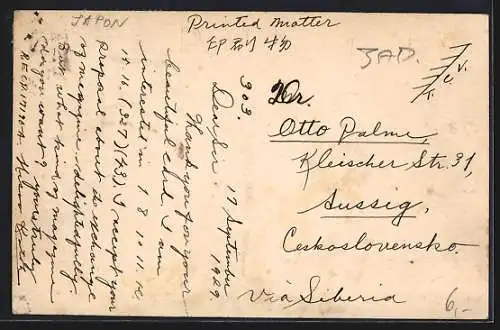 JAPON
Printed Matter
印刷物
JAP.
Dr.
Otto Palme,
Kleischer Str. 31,
Aussig,
Československo.
Via Siberia
6,-
303. 17 September 1929
Dear Sir
Thank you for your
beautiful card. I am
interested in 1. 8. 10. 11. 12.
15. 16. (37) (43). I accept your
proposal about to exchange
of magazine
But what kind of magazine
do you want? yours truly